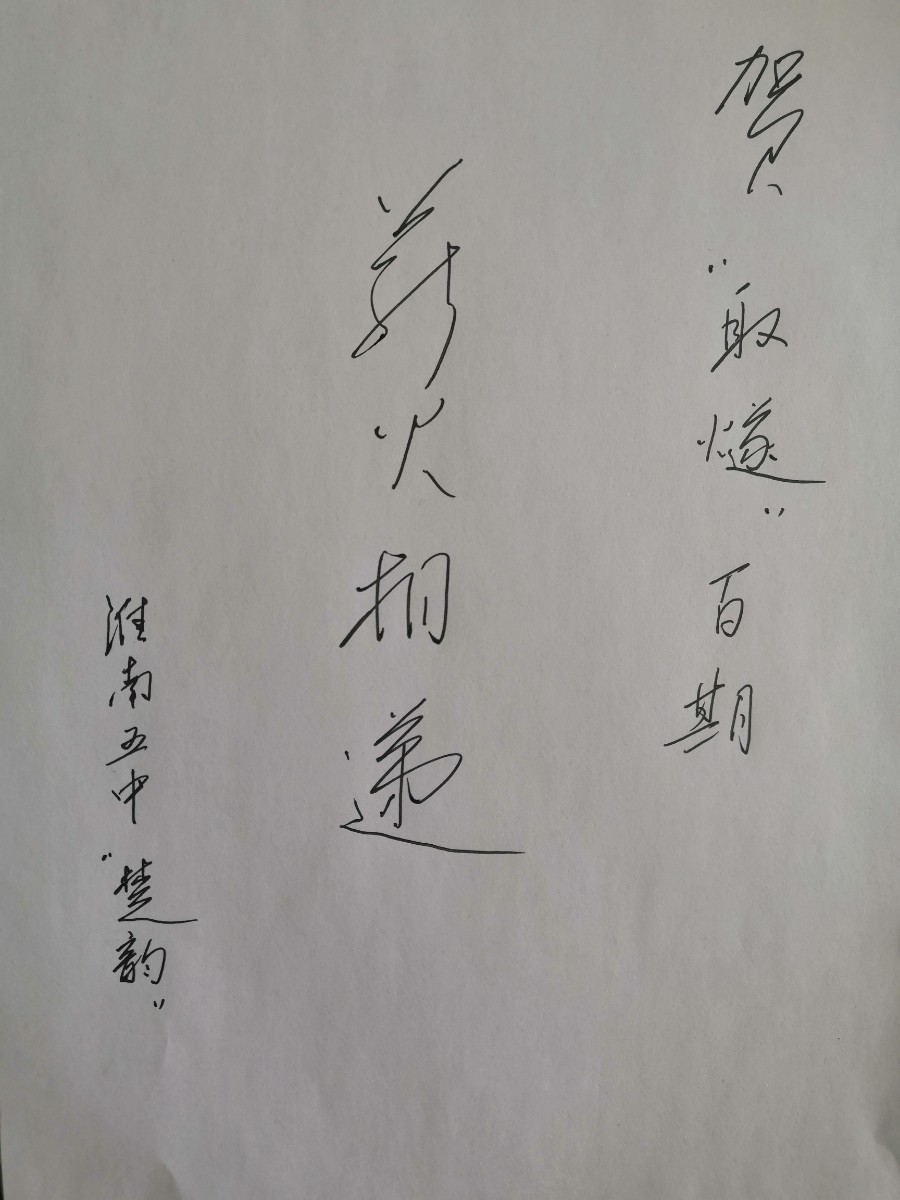 贺"取燧"百期
薪火相递
淮南五中"楚韵"